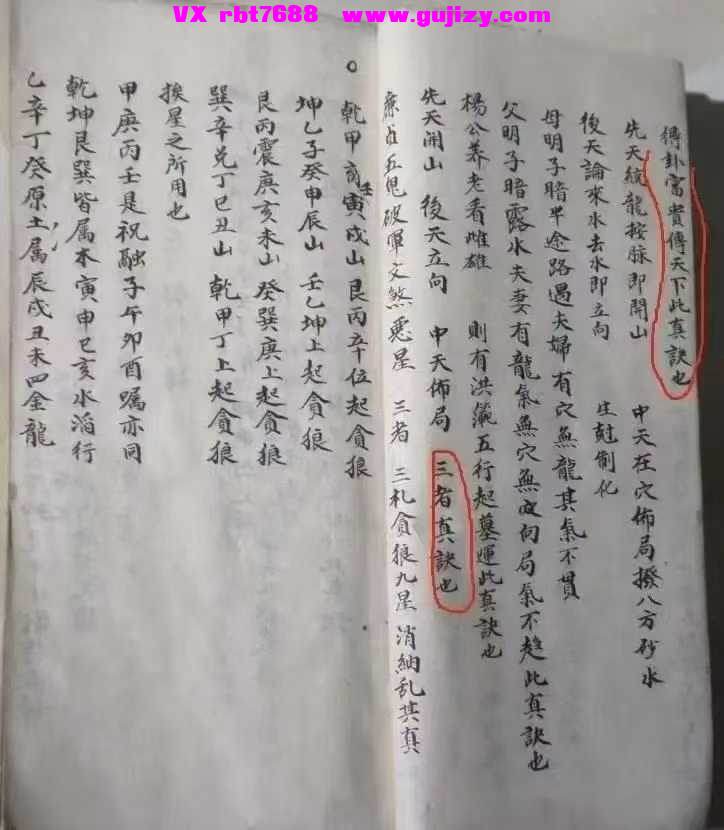 VX rbt7688 www.gujizy.com
得卦富貴傳天下此真訣也
先天統龍按脉即開山 中天在穴佈局撥八方砂水
後天論來水去水即立向 生尅制化
母明子暗半途路過夫婦有穴無龍其氣不貫
父明子暗露水夫妻有龍氣無穴無向局氣不趍此真訣也
楊公养老看雌雄 則有洪範五行起墓運此真訣也
先天開山 後天立向 中天佈局 三者真訣也
廉貞五鬼破軍文煞惡星 三者 三札貪狼九星消納乱其真
乾甲亥寅戌山艮丙辛位起貪狼
坤乙子癸申辰山 壬乙坤上起貪狼
艮丙震庚亥未山癸巽庚上起貪狼
巽辛兑丁巳丑山 乾甲丁上起貪狼
挨星之所用也
甲庚丙壬是祝融子午卯酉嘱亦同
乾坤艮巽皆属木寅申巳亥水滔行
乙辛丁癸原土属辰戌丑未四金龍